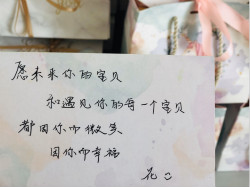 愿未来你的宝贝
和遇见你的每一个宝贝
都因你而微笑
因你而幸福